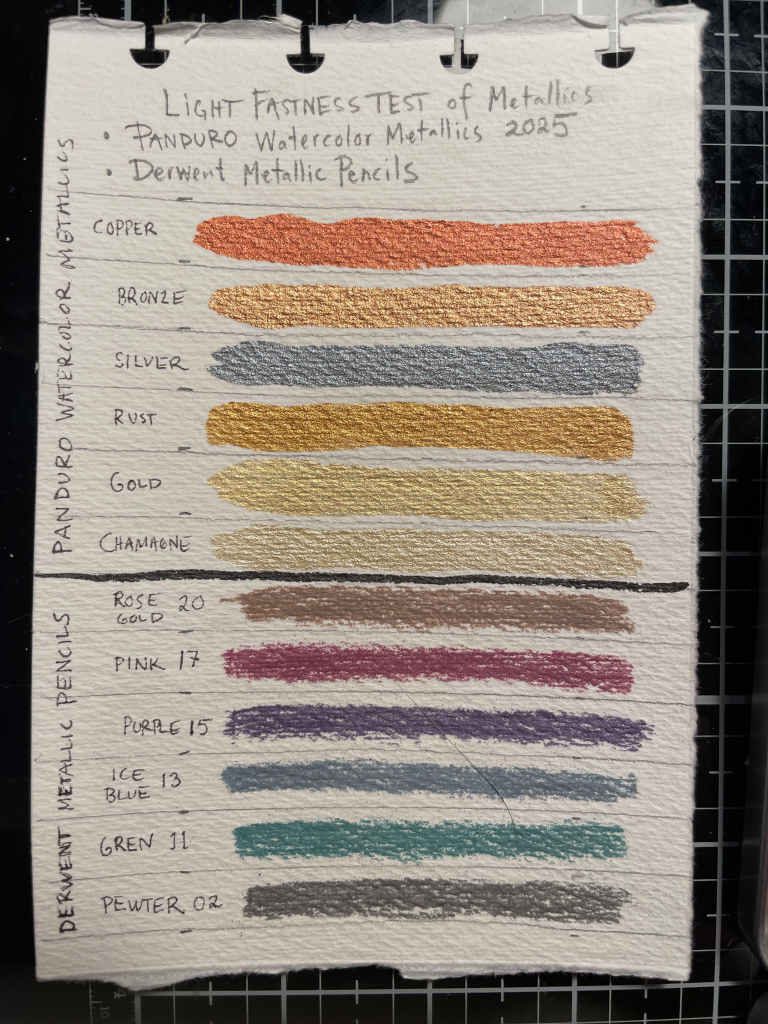 LIGHT FASTNESS TEST of Metallics
• PANDURO Watercolor Metallics 2025
• Derwent Metallic Pencils
PANDURO WATERCOLOR METALLICS
COPPER
BRONZE
SILVER
RUST
GOLD
CHAMAGNE
DERWENT METALLIC PENCILS
ROSE GOLD 20
PINK 17
PURPLE 15
ICE BLUE 13
GREN 11
PEWTER 02